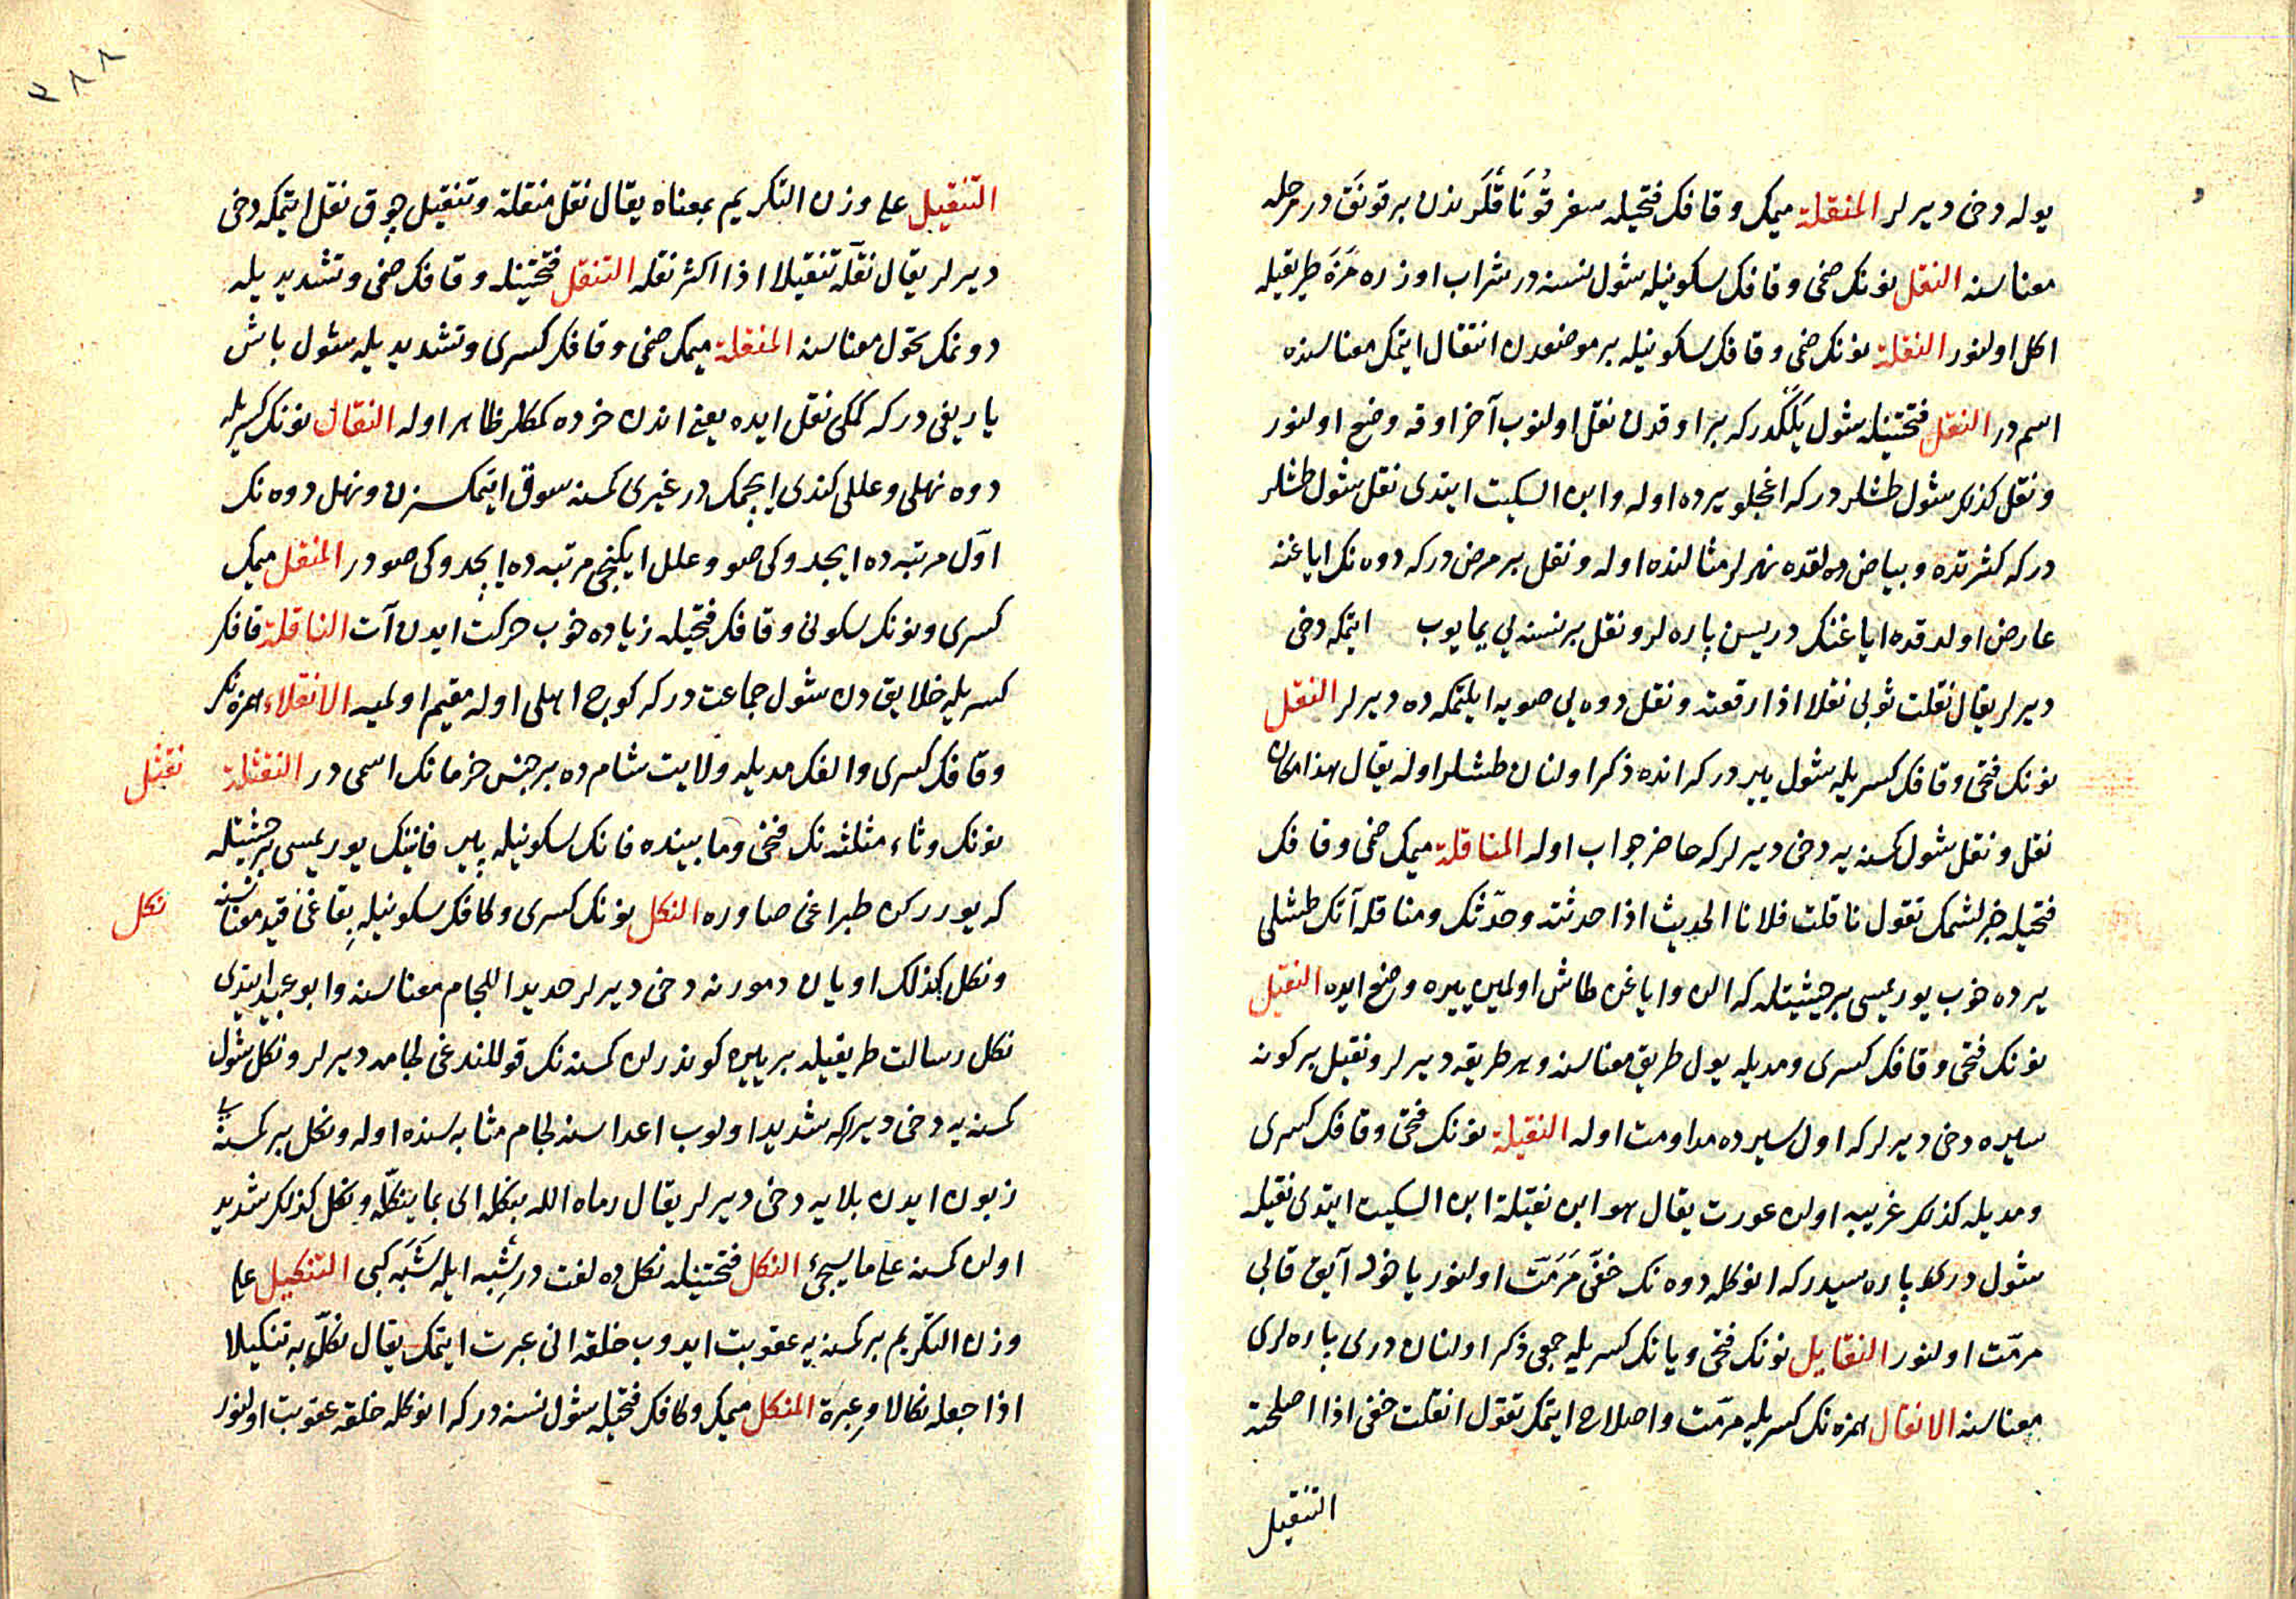 يوله دخی ديرلر المنقلة ميمك وقافك فتحيله سفر قُونَاقْلَرِندن بر قونَق در مرحله
معناسنه النقل نونك ضمی وقافك سكونيله شول نسنه در شراب اوزره مَزَه طريقيله
اكل اولنور النقلة نونك ضمی وقافك سكونيله بر موضعدن انتقال ايتمك معناسنده
اسم در النقل فتحتينله شول يَلَكْدر كه بر اوقدن نقل اولنوب آخر اوقه وضع اولنور
ونقل كذلك شول طشلر در كه اغجلو يرده اوله وابن السكيت ايتدی نقل شول طشلر
در كه كثرتده وبياض دلقده نهرلر مثالنده اوله ونقل بر مرض در كه دوه نك اياغنه
عارض اولدقده اياغنك دريسن پاره لر ونقل بر نسنه يی يمايوب ايتمكه دخی
ديرلر يقال نقلت ثوبی نقلا اذا رقعته ونقل دوه يی صويه ايلتمكه ده ديرلر النقل
نونك فتحی وقافك كسريله شول يير در كه انده ذكر اولنان طشلر اوله يقال هذا مكان
نقل ونقل شول كسنه يه دخی ديرلر كه حاضر جواب اوله المناقلة ميمك ضمی وقافك
فتحيله خبرلشمك تقول ناقلت فلانا الحديث اذا حدثته وحدّثك ومناقله آتك طشلی
يرده خوب يوريميسی بر حيثيتله كه الن واياغن طاش اولمين ييره وضع ايده النقيل
نونك فتحی وقافك كسری ومديله يول طريق معناسنه وهر طريقه ديرلر ونقيل بر كونه
سيره دخی ديرلر كه اول سيرده مداومت اوله النقيلة نونك فتحی وقافك كسری
ومديله كذلك غريبه اولن عورت يقال هو ابن نقيلة ابن السكيت ايتدی نقيله
شول دری پاره سيدر كه انوكله دوه نك خفّی مَرَمَّت اولنور ياخود آيق قابی
مرمّت اولنور النقايل نونك فتحی ويانك كسريله جمعی ذكر اولنان دری پاره لری
معناسنه الانقال همزه نك كسريله مرمّت واصلاح ايتمك تقول انقلت خفی اذا اصلحته
التنقيل
٣٨٨
التنقيل علی وزن التكريم بمعناه يقال نقل منقلة وتنقيل چوق نقل ايتمكه دخی
ديرلر يقال نقّله تنقيلا اذا اكثر نقله التنقل فتحتينله وقافك ضمی وتشديديله
دونمك تحوّل معناسنه المنقلة ميمك ضمی وقافك كسری وتشديديله شول باش
ياريغی در كه كمكی نقل ايده يعنی اندن خرده كمكلر ظاهر اوله النقال نونك كسريله
دوه نهلی وعللی كندی ايچمك در غيری كمسنه سوق ايتمكسزن ونهل دوه نك
اوّل مرتبه ده ايچدوكی صو وعلل ايكنجی مرتبه ده ايچدوكی صودر المنقل ميمك
كسری ونونك سكونی وقافك فتحيله زياده خوب حركت ايدن آت الناقلة قافك
كسريله خلايق دن شول جماعت در كه كوچ اهلی اوله مقيم اولميه الانقلاء همزه نك
وقافك كسری والفك مديله ولايت شام ده بر جنس خرمانك اسمی در النقثلة
نقثل
نونك وثاء مثلثه نك فتحی ومابينده قافك سكونيله پير فانينك يوريميسی بر حيثيتله
كه يورركن طپراغی صاوره النكل نونك كسری وكافك سكونيله بقاغی قيد معناسنه
نكل
ونكل كذلك اويان دمورنه دخی ديرلر حديد اللجام معناسنه وابو عبيد ايتدی
نكل رسالت طريقيله بر ييره كوندرلن كمسنه نك قوللندغی لجامه ديرلر ونكل شول
كمسنه يه دخی ديرلر كه شديد اولوب اعداسنه لجام مثابه سنده اوله ونكل بر كمسنه يی
زبون ايدن بلايه دخی ديرلر يقال رماه الله بنكله ای بما ينكّله ونكل كذلك شديد
اولن كمسنه علی ما يجیء النكل فتحتينله نكل ده لغت در شِبْه ايله شَبَه كبی التنكيل علی
وزن التكريم بر كمسنه يه عقوبت ايدوب خلقه انی عبرت ايتمك يقال نكّل به تنكيلا
اذا جعله نكالا وعِبرة المنكل ميمك وكافك فتحيله شول نسنه در كه انوكله خلقه عقوبت اولنور